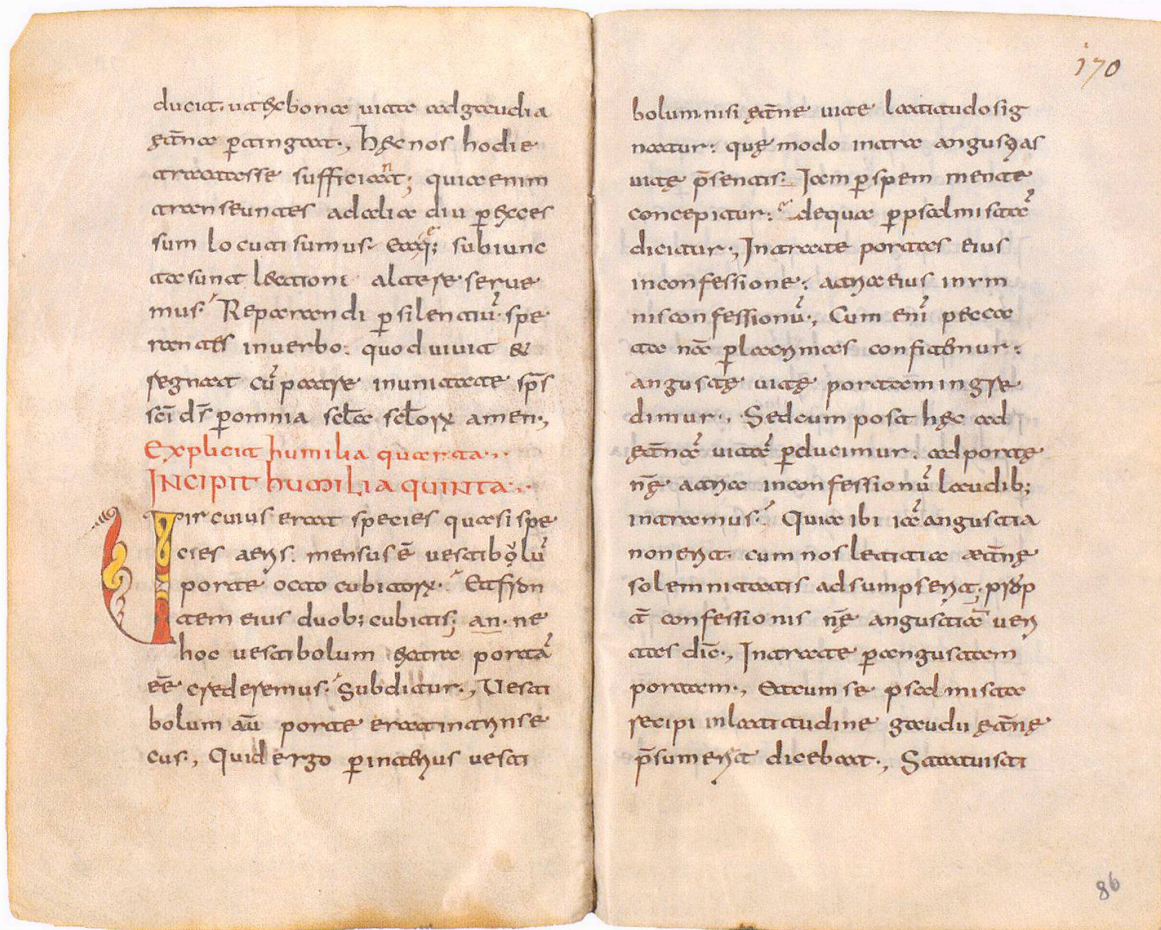 ducit. ut hęc bona vita ad gaudia
ęt̄na ꝑtingat., Hęc nos hodie
tractasse sufficiaⁿt; quia enim
transeuntes ad alia diu ꝑ exces
sum locuti sumus. Eaq; subiunc
ta sunt lectioni altere serve
mus. Reparandi ꝑ silentiū. spe
rantes in verbo. quod vivit &
regnat cū patre in unitate sp̄s
sc̄i ds̄ ꝑ omnia scl̄a scl̄oꝝ amen.,
Explicit humilia quarta..
INCIPIT humilia QUINTA..
Vir cuius erat species quasi spe
cies aeris. mensus ē vestibolū
porte octo cubitoꝝ. Et fron
tem eius duob; cubitis; an. ne
hoc vestibolum extra portā
eē crederemus. Subditur., Vesti
bolum aū porte erat intrinse
cus., Quid ergo ꝑ interius vesti
170
bolum. nisi ęt̄ne vite latitudo sig
natur. quę modo intra angustias
vitę p̄sentis. Iam ꝑ spem mente
concepitur. de qua ꝑ psalmistā
dicitur., Intrate portas eius
in confessione. atria eius in ym
nis confessionū., Cum enī pecca
ta nr̄a ꝑ lacrimas confitemur.
anguste vitę portam ingre
dimur., Sed cum post hęc ad
ęt̄nā vitā ꝑducimur. ad portę
nr̄ę atria in confessionū laudib;
intramus. Quia ibi iā angustia
non erit. cum nos letitia ęt̄ne
solemnitatis adsumpserit. prop
t̄ confessionis nr̄ę angustiā veri
tas dic̄., Intrate ꝑ angustam
portam., Et cum se psalmista
recipi in latitudine gaudii ęt̄ne
p̄sumerit dicebat., Statuisti
86